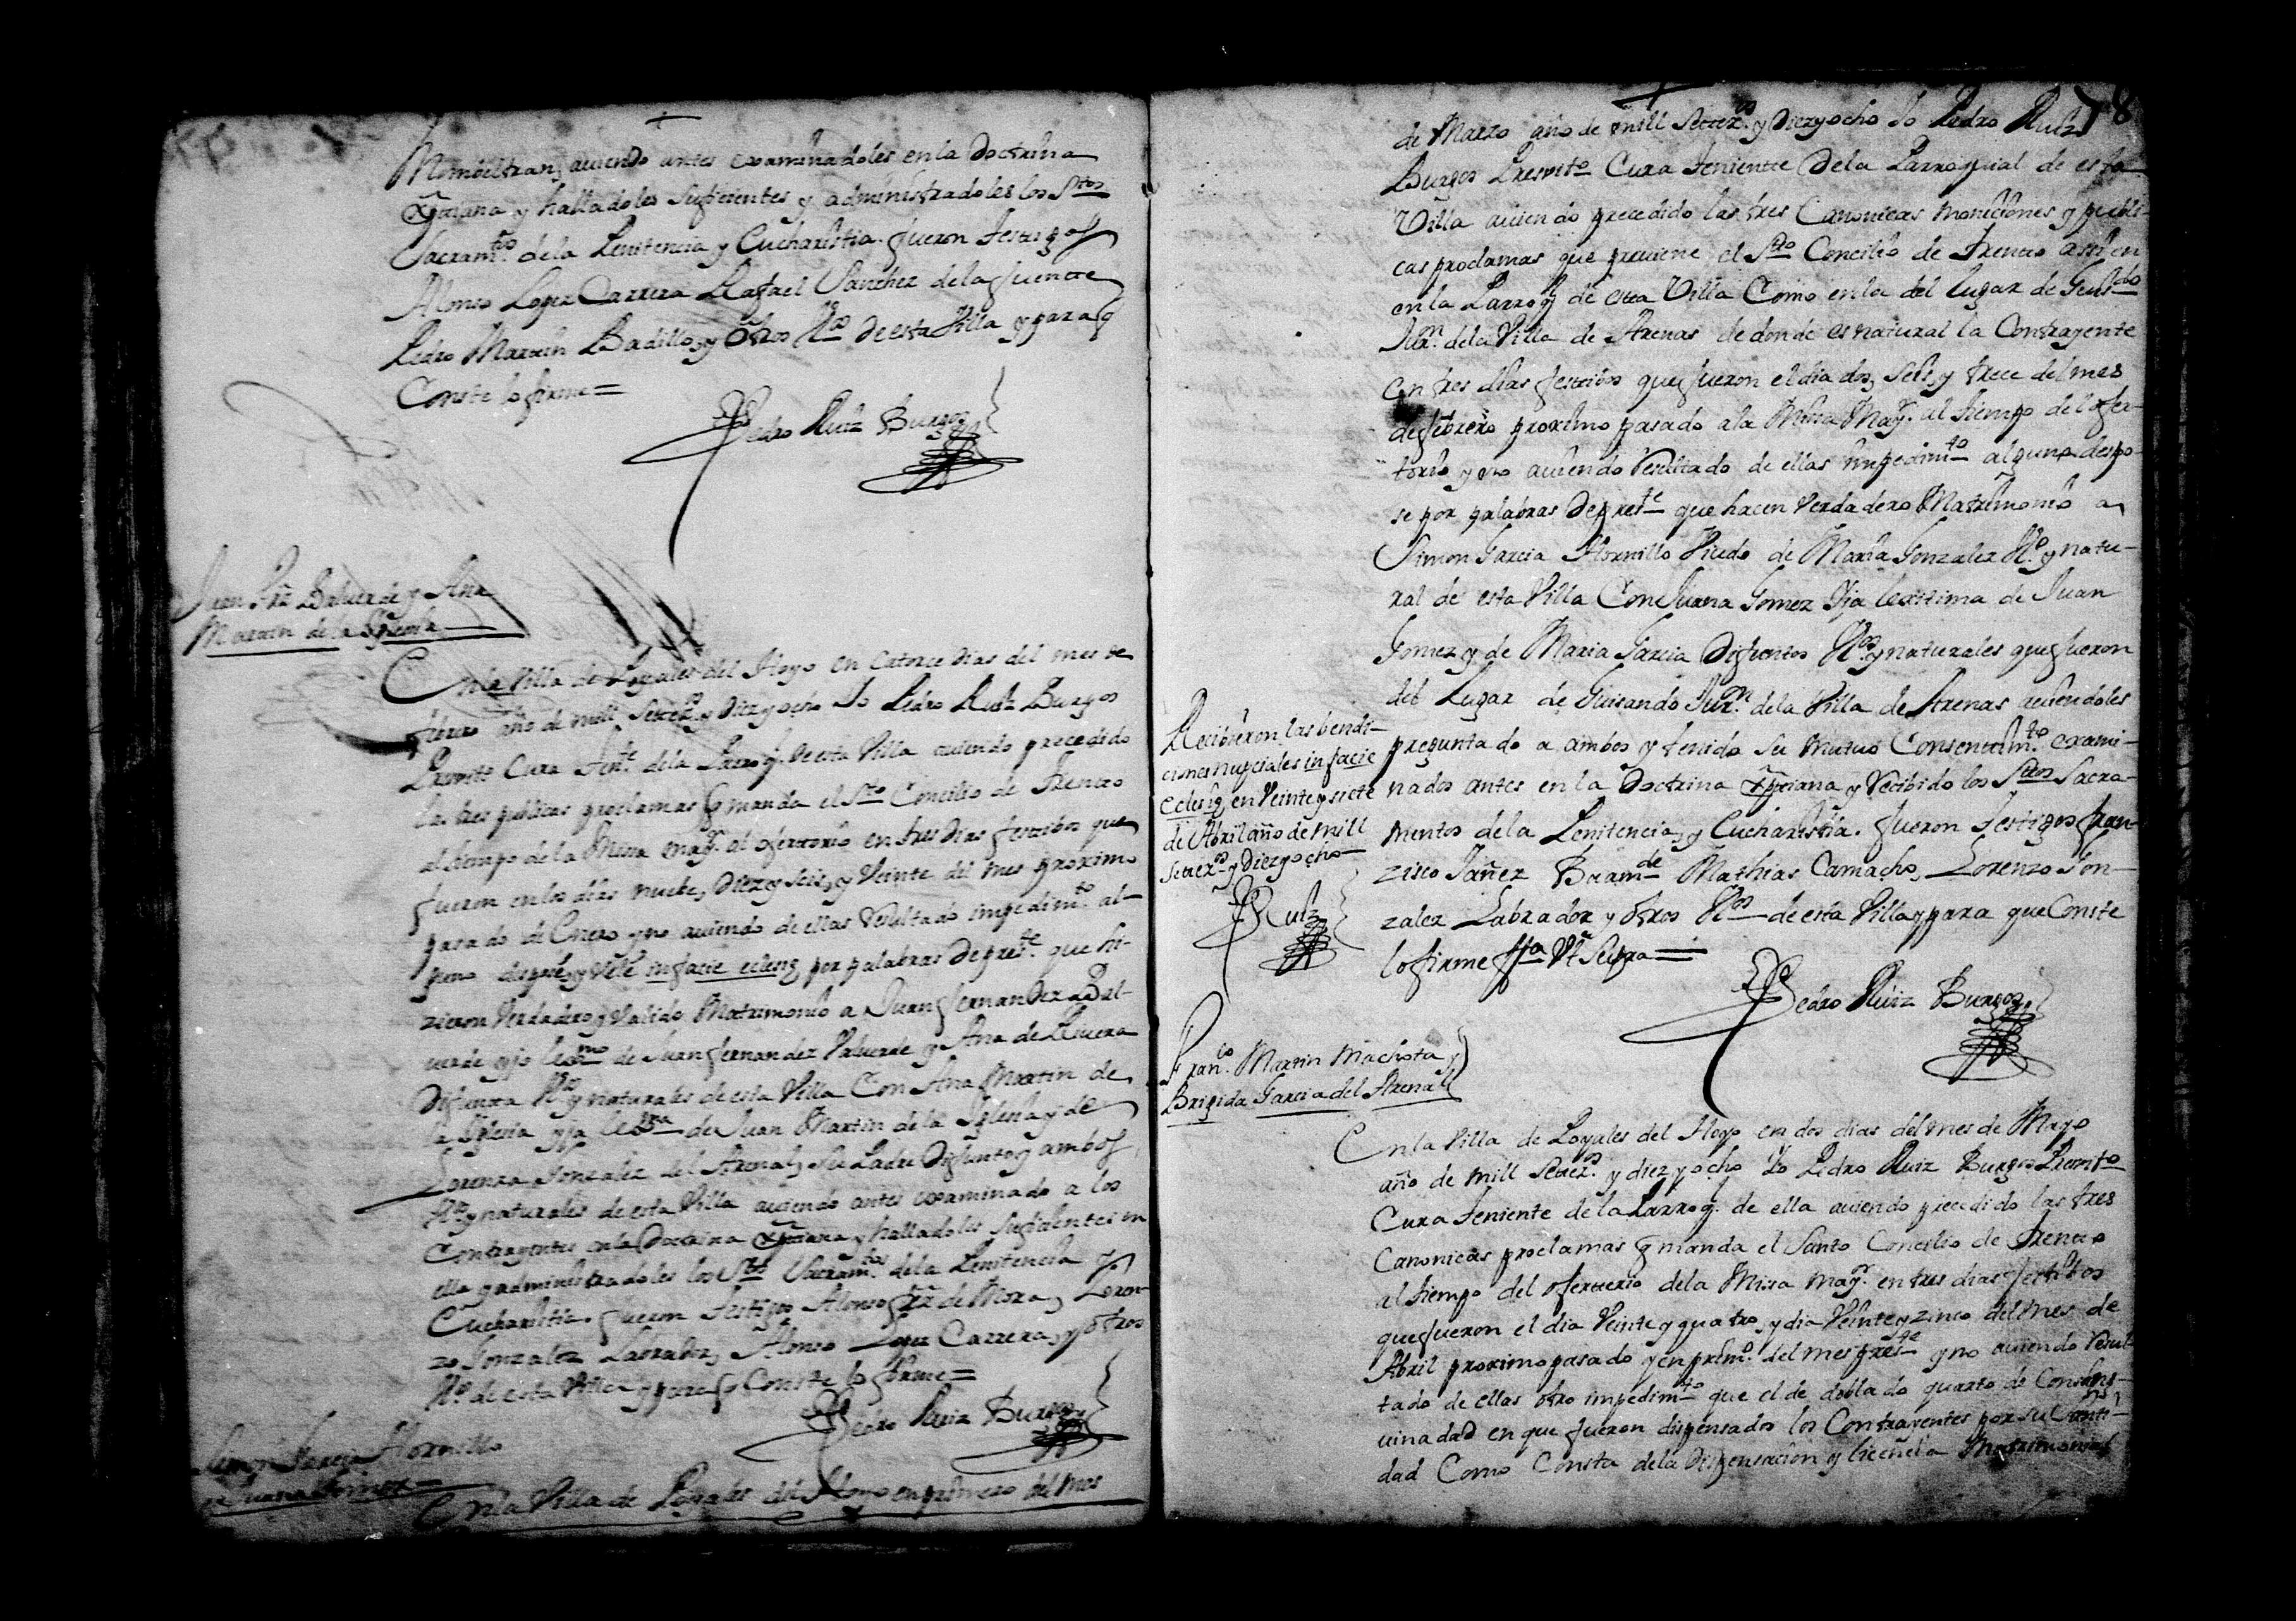 Mombeltran, auiendo antes examinadoles en la Doctrina
Xptiana y halladoles Suficientes y administradoles los Stos
Sacramtos de la Penitencia y Eucharistia. fueron testigos
Alonso Lopez Carrera Rafael Sanchez de la fuente
Pedro Martin Badillo, y otros Vos de esta Villa y para q
Conste lo firme =
Pedro Ruiz Burgos
Juan Frz Baluerde y Ana
Martin de la Iglesia
En la Villa de Poyales del Hoyo en Catorce dias del mes de
febrero año de mill Settezos y Diez y ocho Yo Pedro Ruiz Burgos
Presvito Cura Tente de la Parroql de esta Villa auiendo precedido
las tres publicas proclamas q manda el Sto Concilio de Trento
al tiempo de la Missa mayr al ofertorio en tres dias festibos que
fueron en los dias nuebe, Diez y seis, y Veinte del mes proximo
pasado de Enero y no auiendo de ellas Resultado impedimto al-
guno despose, y Vele in facie eclesię por palabras de preste que hi-
zieron Verdadero y Valido Matrimonio a Juan fernandez Bal-
uerde yjo lexmo de Juan fernandez Valuerde y Ana de Riuera
Difunta Vos y naturales de esta Villa Con Ana Martin de
la Iglesia yja lextma de Juan Martin de la Iglesia y de
Lorenza Gonzalez del Arenal, su Padre Difunto y ambos
Vos y naturales de esta Villa auiendo antes examinado a los
Contrayentes en la Doctrina Xptiana y halladoles Suficientes en
ella y administradoles los Stos Sacramtos de la Penitencia y
Eucharistia. fueron testigos Alonso frz de Mora, Loren-
zo Gonzalez Labrador, Alonso Lopez Carrera, y otros
Vos de esta Villa y para q Conste lo firme =
Pedro Ruiz Burgos
Simon Garcia Hornillo
y Juana Gomez
En la Villa de Poyales del Hoyo en primero del mes
78
de Marzo año de mill Settezos y Diez y ocho Yo Pedro Ruiz
Burgos Presvito Cura teniente de la Parroquial de esta
Villa auiendo precedido las tres Canonicas moniciones y publi-
cas proclamas que preuiene el Sto Concilio de Trento assi en
en la Parroql de esta Villa Como en la del Lugar de Guisdo
Jurn de la Villa de Arenas de donde es natural la Contrayente
en tres dias festibos que fueron el dia dos, Seis, y trece del mes
de febrero proximo pasado a la Missa Mayr al tiempo del ofer-
torio y no auiendo Resultado de ellas impedimto alguno despo-
se por palabras de preste que hacen Verdadero Matrimonio a
Simon Garcia Hornillo Viudo de Maria Gonzalez Vo y natu-
ral de esta Villa Con Juana Gomez Yja lexitima de Juan
Gomez y de Maria Garcia Difuntos Vos y naturales que fueron
del Lugar de Guisando Jurn de la Villa de Arenas auiendoles
preguntado a ambos y tenido su mutuo Consentimto exami-
nados antes en la Doctrina Xptiana y Recibido los Stos Sacra-
mentos de la Penitencia, y Eucharistia. fueron testigos fran-
zisco Yañez Baamde Mathias Camacho, Lorenzo Gon-
zalez Labrador y otros Vos de esta Villa y para que Conste
lo firme ffha Vt Supra =
Pedro Ruiz Burgos
Recibieron las bendi-
ciones nupciales in facie
eclesię en Veinte y siete
de Abril año de mill
Settezos y Diez y ocho
Ruiz
Franco Martin Machota y
Brigida Garcia del Arenal
En la Villa de Poyales del Hoyo en dos dias del mes de Mayo
año de mill Settezos y diez y ocho Yo Pedro Ruiz Burgos Presvito
Cura teniente de la Parroql de ella auiendo precedido las tres
Canonicas proclamas q manda el Santo Concilio de Trento
al tiempo del ofertorio de la Missa mayr en tres dias festibos
que fueron el dia Veinte y quatro, y dia Veinte y zinco del mes de
Abril proximo pasado y en primo del mes preste y no auiendo Resul-
tado de ellas otro impedimto que el de doblado quarto de Consang-
uinadad en que fueron dispensados los Contrayentes por su Santi-
dad Como Consta de la Dispensacion y licencia Matrimonial